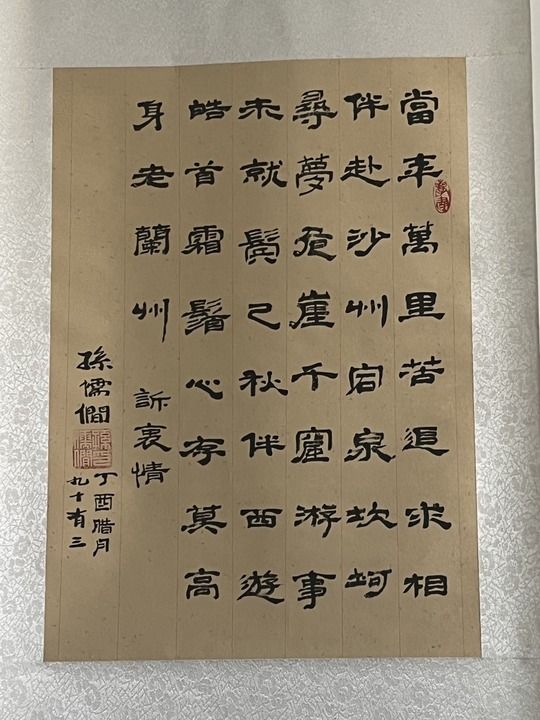 當年萬里苦追求相
伴赴沙州宕泉坎坷
尋夢危崖千窟游事
未就鬓已秋伴西遊
皓首霜鬚心存莫高
身老蘭州 訴衷情
孫儒僩
丁酉腊月
九十有三